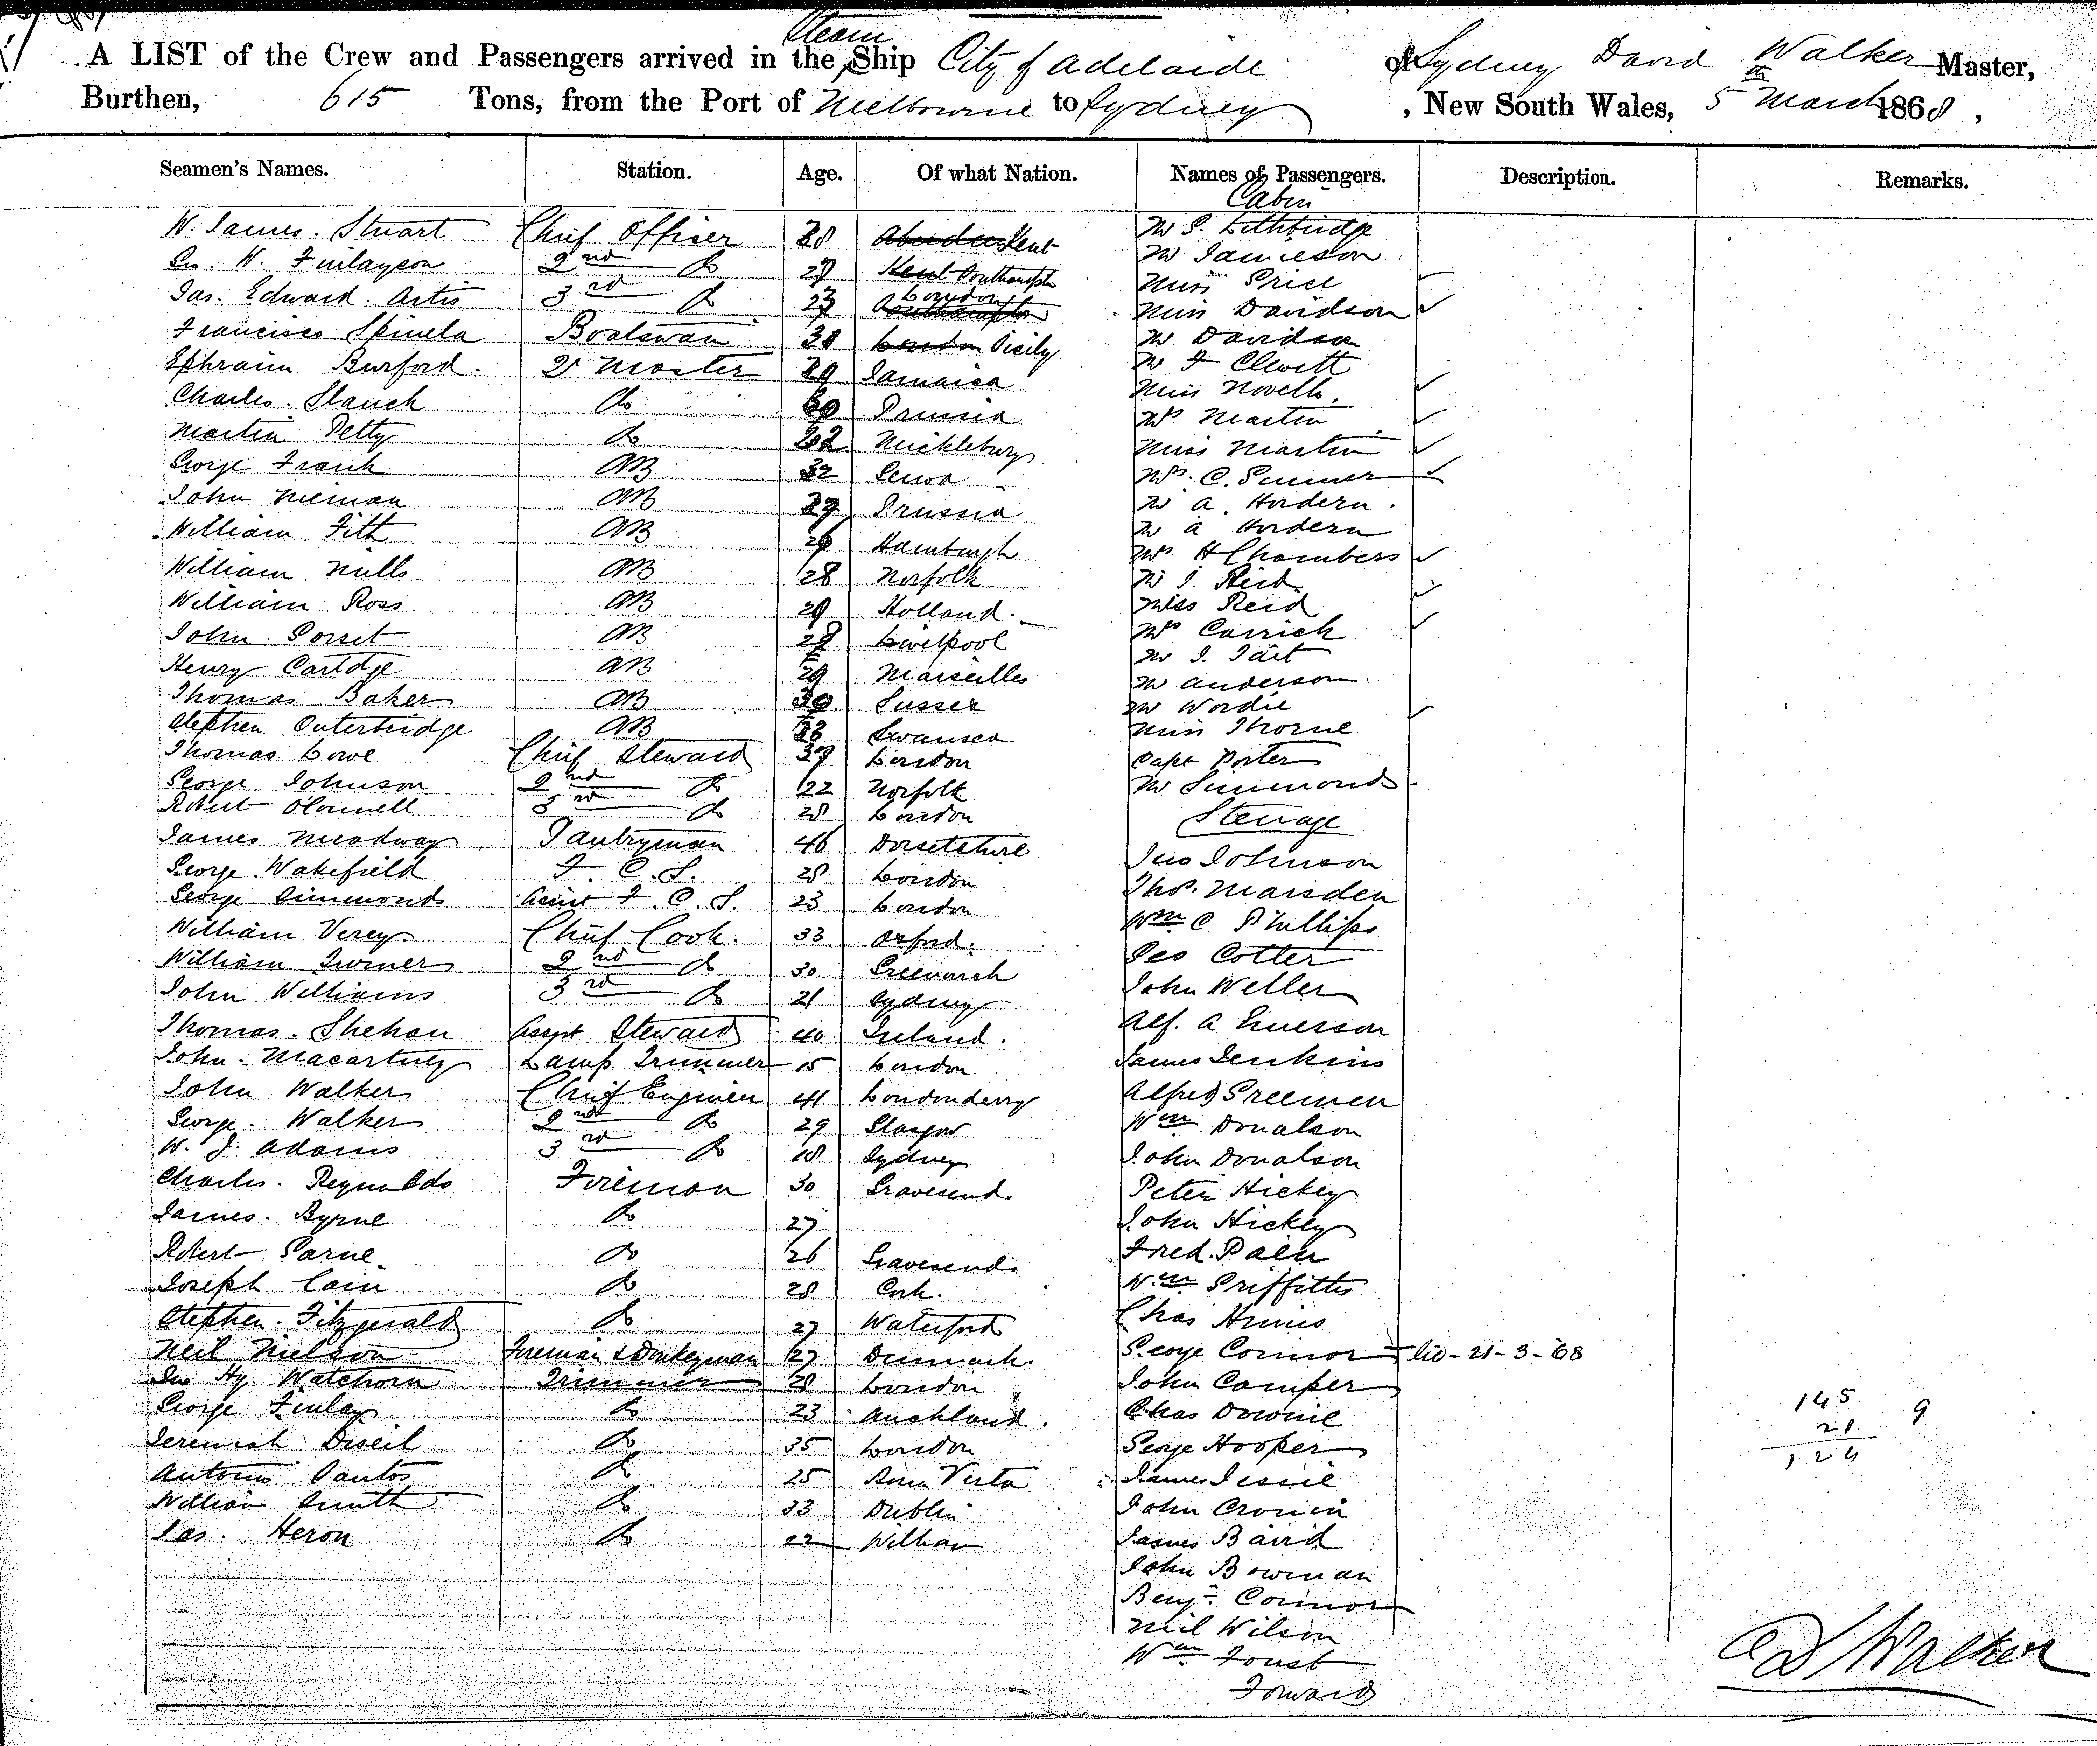 Steam
A LIST of the Crew and Passengers arrived in the Ship City of Adelaide of Sydney David Walker Master,
Burthen, 615 Tons, from the Port of Melbourne to Sydney , New South Wales, 5th March 1868 ,
Seamen's Names. Station. Age. Of what Nation. Names of Passengers. Description. Remarks.
Cabin
W. James. Stuart Chief Officer Kent Mr S. Lethbridge
H. Finlayson 2nd Do Southampton Mr Jamieson
Jas. Edward. Artis 3rd Do London Miss Price
Miss Davidson
Francisco Spinela Boatswain Sicily Mr Davidson
Ephraim Burford. 29 Jamaica Mr F Clewitt
Charles. Do Prussia Miss Novello.
Martin Petty Do Mickleburg Mrs Martin
George Frank AB 32 Genoa Miss Martin
John Nieman AB 29 Prussia Mrs C. Sumner
William Fitt AB 29 Hamburgh Mr A. Hordern.
Mr A Hordern
William Mills AB 28 Norfolk Mrs H Chambers
William Ross AB 29 Holland. Mr J. Reid
John Dorset AB Liverpool Miss Reid
Henry Cartdge AB 29 Marseilles Mrs Carrick
Mr J. Tait
Thomas Baker AB Sussex Mr Anderson
Stephen Outerbridge AB Swansea Mr Wordie
Thomas Lowe Chief Steward 39 London Miss Thorne
George Johnson 2nd Do 22 Norfolk Capt Porter
Robert OConnell 3rd Do 28 London Mr Simmonds
Steerage
James Meadway Pantryman 46 Dorsetshire Jno Johnson
George Wakefield F. C. S. 28 London Thos. Marsden
George Simmonds Assist F. C. S. 23 London Wm C Phillips
William Verey Chief Cook. 33 Oxford. Geo Cotter
William Turner 2nd Do 30 Greenwich John Weller
John Williams 3rd Do 21 Sydney Alf. A Emerson
Thomas. Shehan Assist Steward 40 Ireland. James Jenkins
John. Macartney Lamp Trimmer 15 London Alfred Freemen
John Walker Chief Engineer 41 Londonderry Wm Donalson
George. Walker 2nd Do 29 Glasgow John Donalson
W. J. Adams 3rd Do 18 Sydney Peter Hickey
Charles. Reynolds Fireman 30 Gravesend. John Hickey
James. Byrne Do 27
Robert Do 26 Gravesend. Fred.
Joseph Cain Do 28 Cork. Wm Griffiths
Stephen. Fitzgerald Do 27 Waterford Chas
Neil Nielson Fireman & Donkeyman 27 Denmark. George Connor - 21-3-68
Jno Hy. Watchorn Trimmer 28 London John Camper
George Finlay Do 23 Auckland. Chas Downie
Jeremiah Do 35 London George Hooper
Antonio Santos Do 25 Bona Vista James Jessie
William Smith Do 33 Dublin John Cronin
Jas. Heron Do 22 James Baird
John Bowman
Benjn. Connor
Neil Wilson
Wm
Forward
145 9
21
124
D Walker